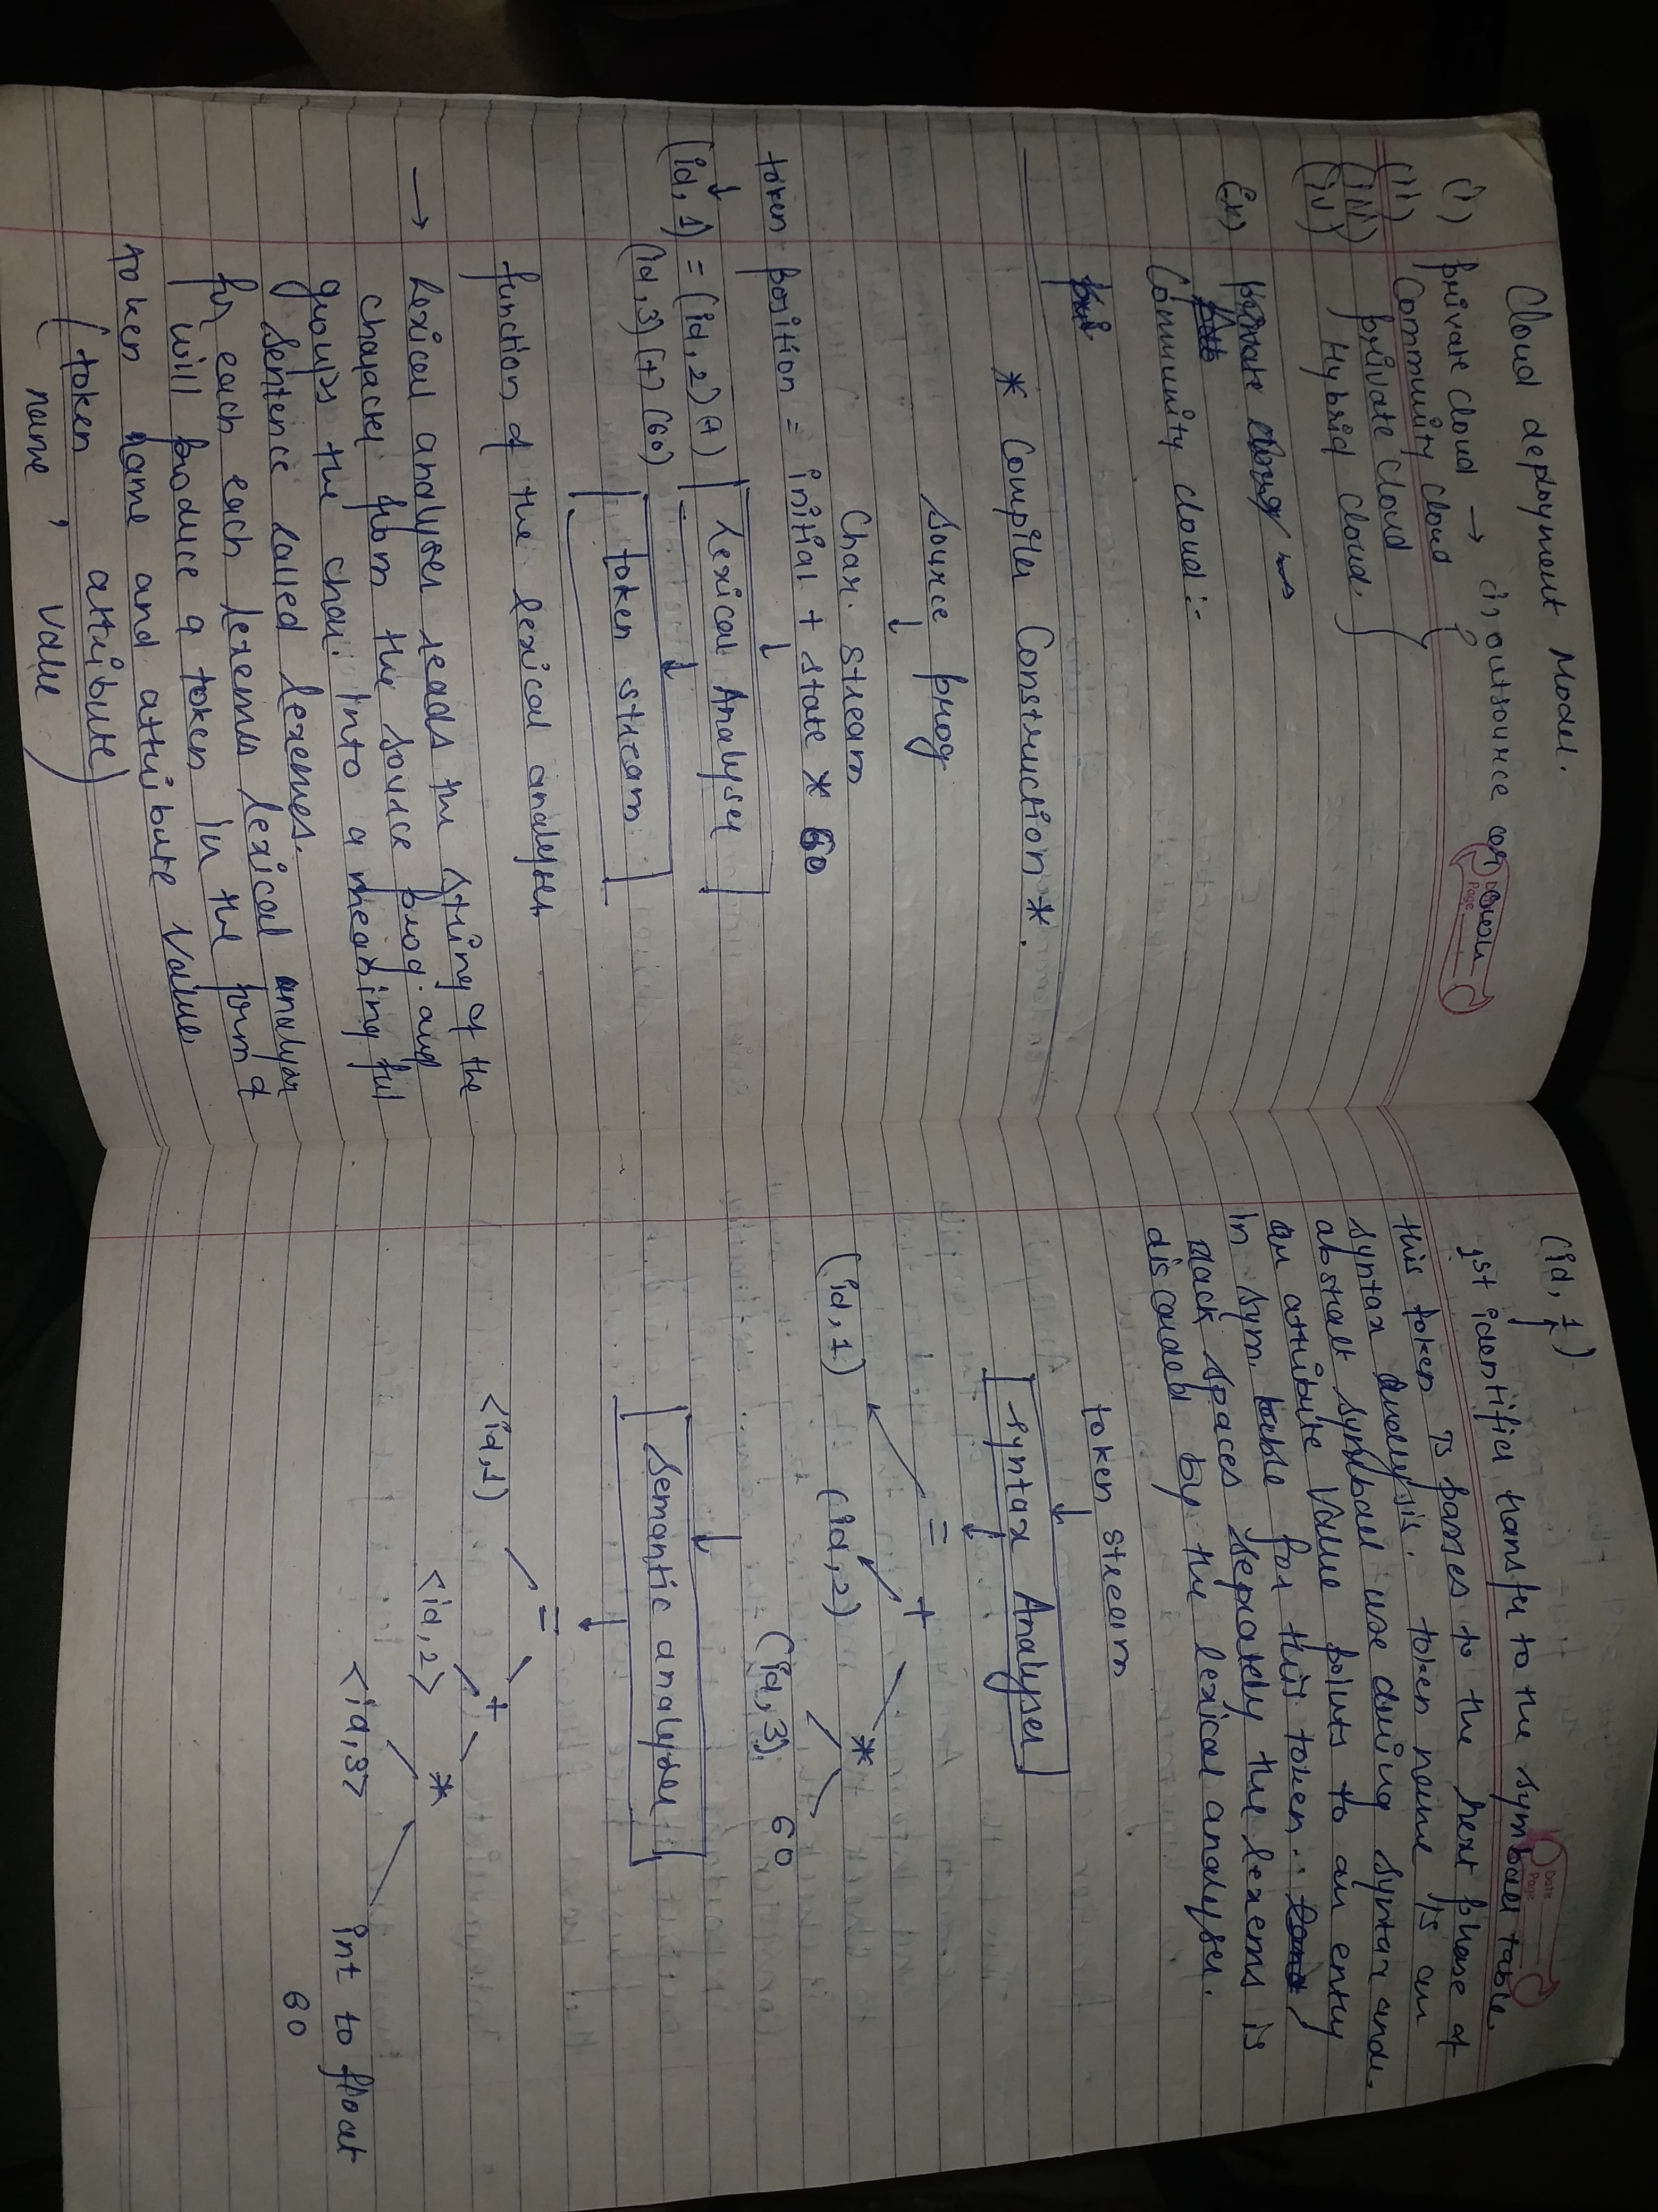 Cloud deployment Model.
(i) private cloud → is outsource or own
(ii) Community cloud
(iii) private cloud
(iv) Hybrid cloud.
(ex) private
Community cloud :-
* Compiler Construction *.
Source prog
↓
Char. stream
token position = initial + state * 60
↓ ↓
(id, 1) = (id, 2) (+) Lexical Analyser
(id, 3) (*) (60) ↓
token stream
function of the lexical analyser
→ Lexical analyser reads the string of the
character from the source prog. and
groups the char. into a meaning ful
sentence called lexemes.
for each each lexems lexical analyser
will produce a token in the form of
token name and attribute value.
(token attribute)
name , value)
Date
Page
(id, 1)
1st identifier transfer to the symbael table.
this token is passes to the next phase of
syntax analysis. token name is an
abstract symbael use during syntax and.
an attribute value points to an entry
in sym. table for this token.
black spaces separately the lexems is
discarded by the lexical analyser.
token stream
↓
syntax Analyser
↓
=
(id, 1) +
(id, 2) *
(id, 3) 60
↓
Semantic analyser
↓
=
<id,1> +
<id,2> *
<id,3> int to float
60
Date
Page